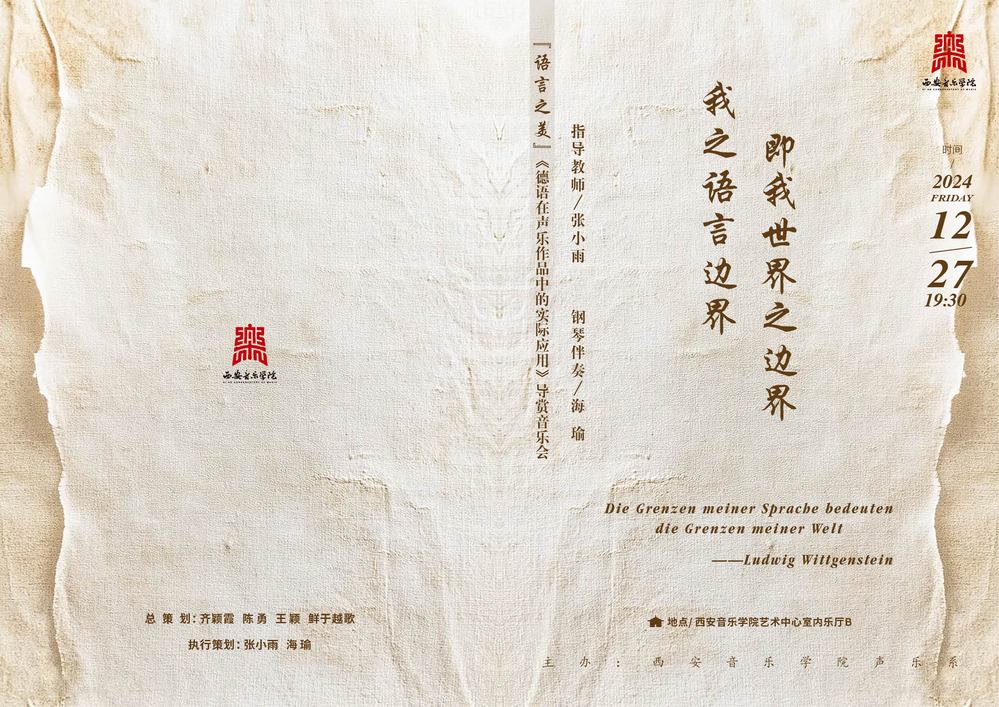 西安音乐学院
XI'AN CONSERVATORY OF MUSIC
时间
/
2024
FRIDAY
12
27
19:30
我之语言边界
即我世界之边界
『语言之美』《德语在声乐作品中的实际应用》导赏音乐会
指导教师/张小雨 钢琴伴奏/海 瑜
Die Grenzen meiner Sprache bedeuten
die Grenzen meiner Welt
——Ludwig Wittgenstein
地点/西安音乐学院艺术中心室内乐厅B
主办：西安音乐学院声乐系
西安音乐学院
XI'AN CONSERVATORY OF MUSIC
总 策 划：齐颖霞 陈勇 王颖 鲜于越歌
执行策划：张小雨 海瑜